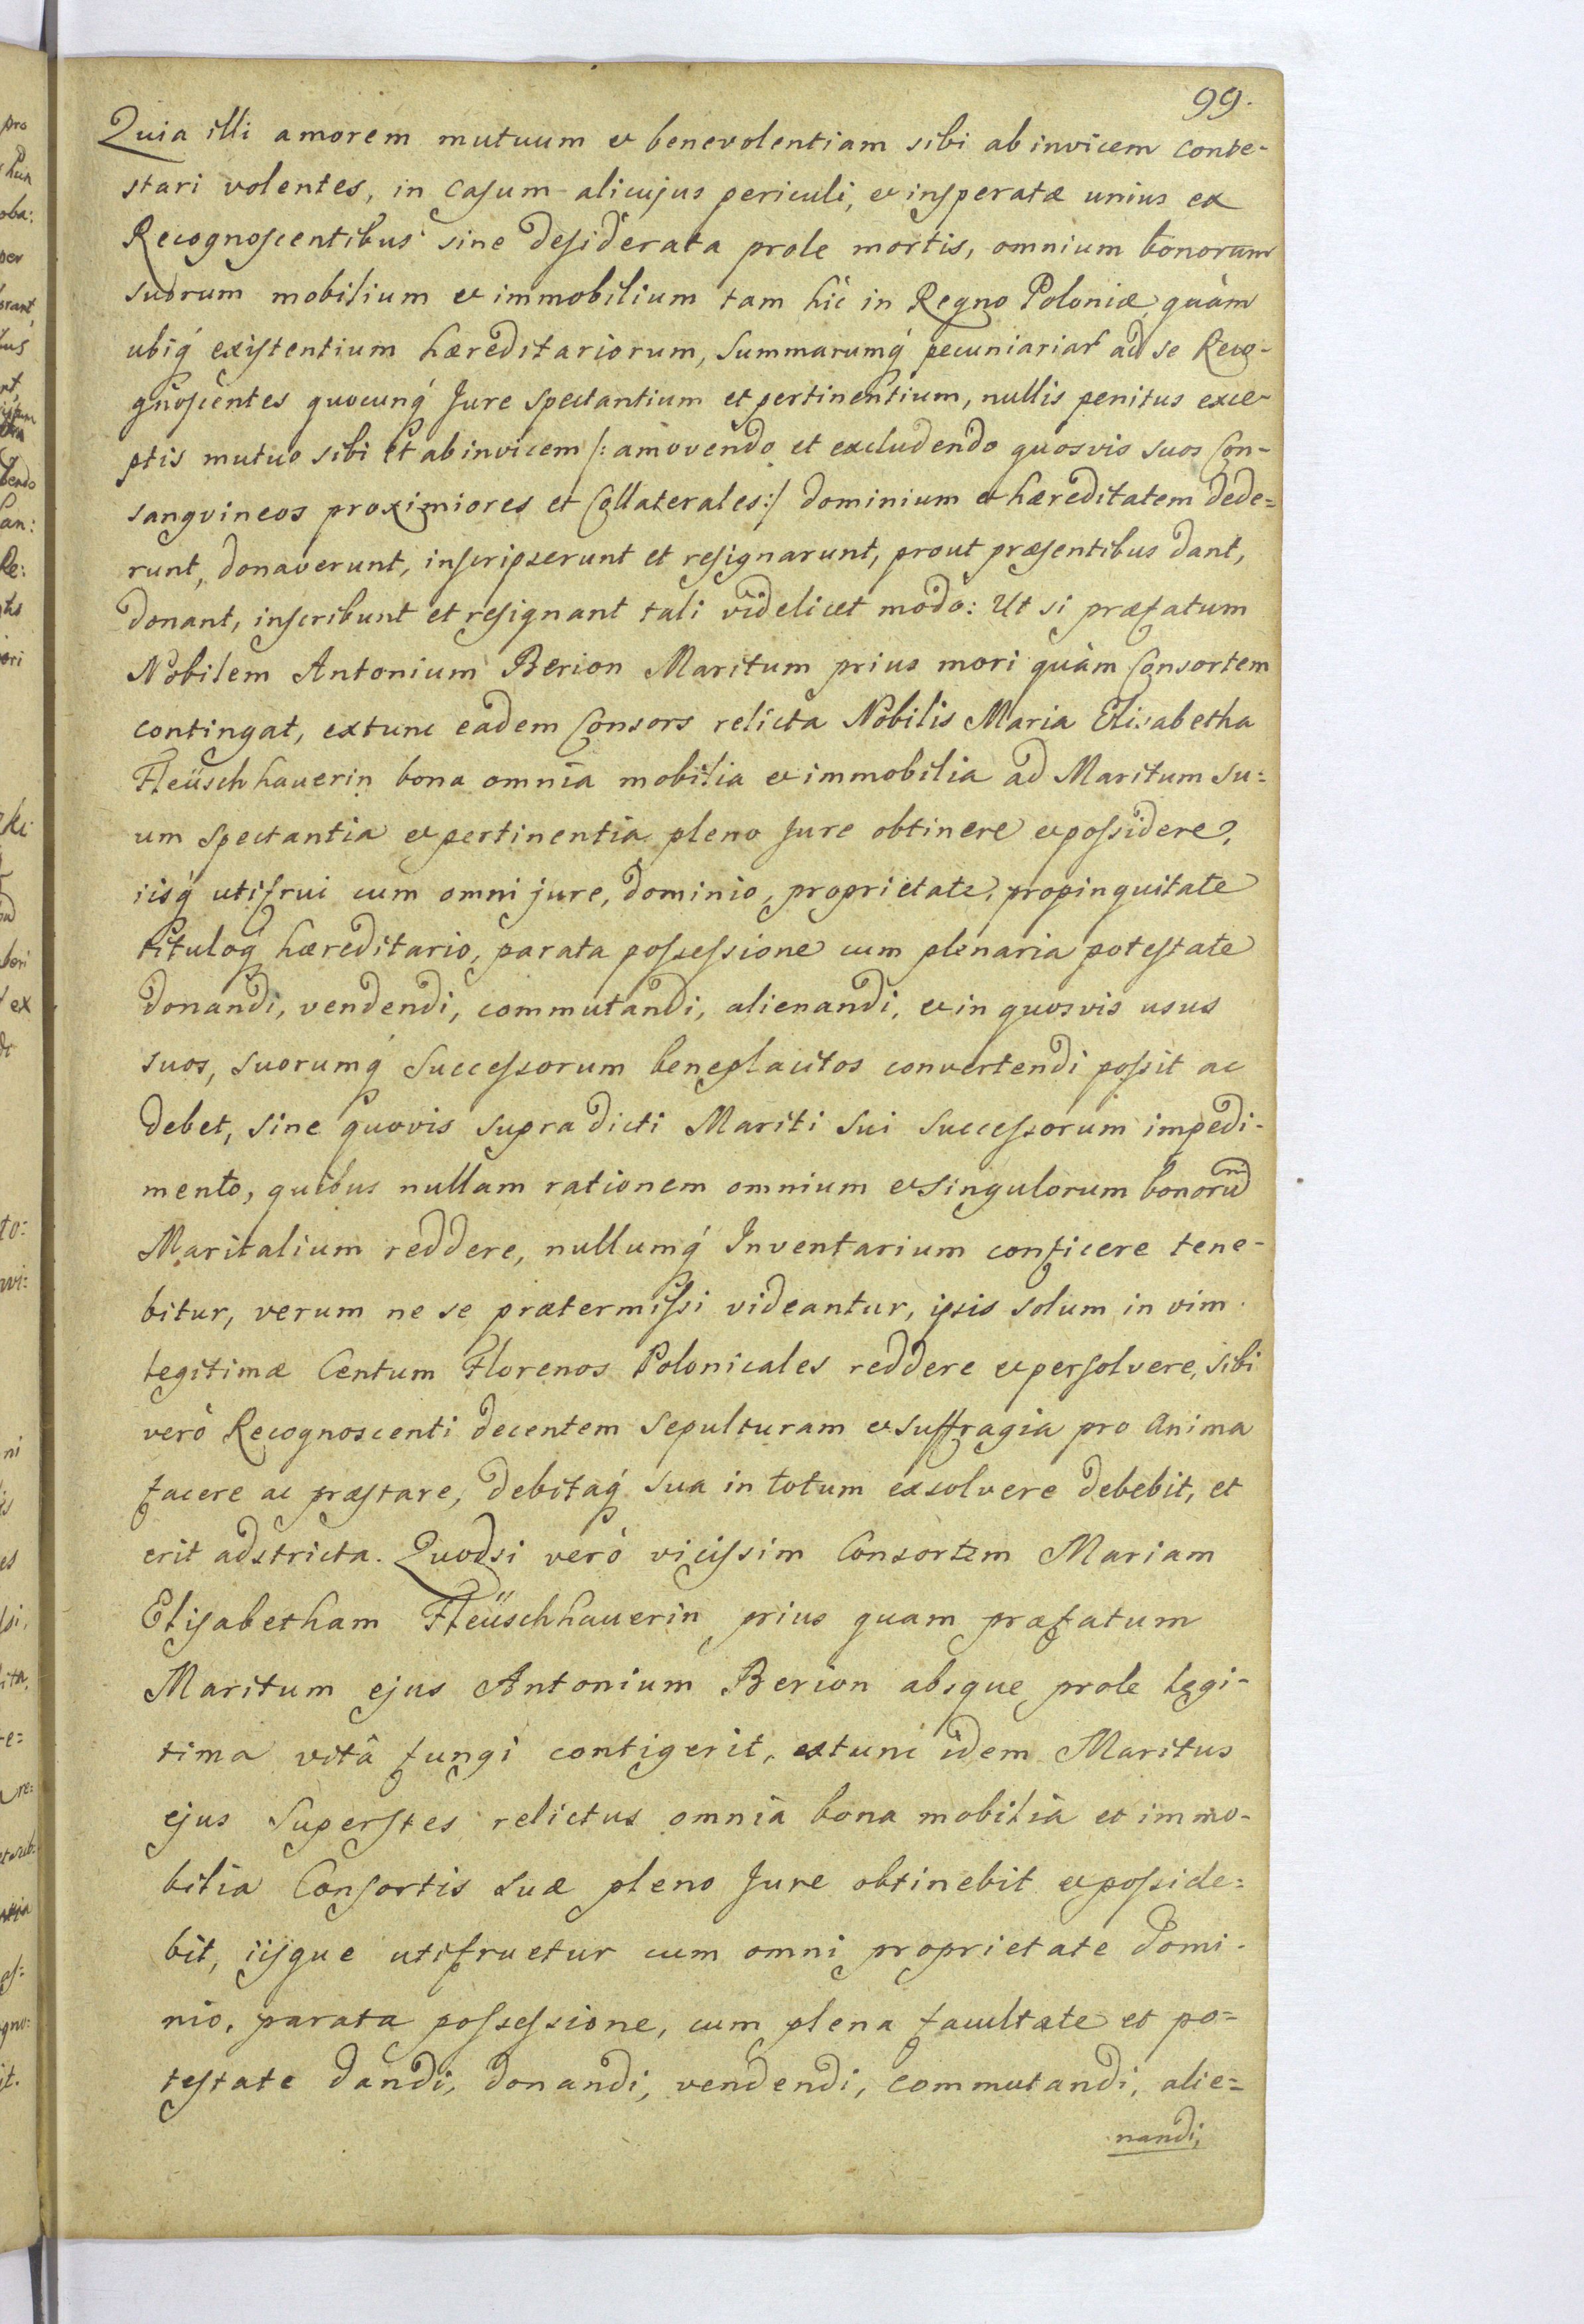 99.
Quia illi amorem mutuum et benevolentiam sibi ab invicem conte-
stari volentes, in Casum alicujus periculi, et insperatæ unius ex
Recognoscentibus sine desiderata prole mortis, omnium bonorum
suorum mobilium et immobilium tam hîc in Regno Poloniæ, quàm
ubiq́ existentium hæreditariorum, Summarumq́ pecuniariar ad se Reco-
gnoscentes quocunq́ Jure Spectantium et pertinentium, nullis penitus exce-
ptis mutuo sibi et ab invicem /: amovendo et excludendo quosvis suos Con-
sangvineos proximiores et Collaterales :/ dominium et hæreditatem dede=
runt, donaverunt, inscripserunt et resignarunt, prout præsentibus dant,
donant, inscribunt et resignant tali videlicet modo: Ut si præfatum
Nobilem Antonium Berion Maritum prius mori quàm Consortem
contingat, extunc eadem Consors relicta Nobilis Maria Elisabetha
Fleüschhauerin bona omnia mobilia et immobilia ad Maritum Su=
um Spectantia et pertinentia pleno Jure obtinere et possidere,
iisq́ utifrui cum omni jure, dominio, proprietate, propinquitate
tituloq́ hæreditario, parata possessione cum plenaria potestate
donandi, vendendi, commutandi, alienandi, et in quosvis usus
suos, suorumq́ Successorum beneplacitos convertendi possit ac
debet, sine quovis supradicti Mariti Sui Successorum impedi-
mento, quibus nullam rationem omnium et singulorum bonorum
Maritalium reddere, nullumq́ Inventarium conficere tene-
bitur, verum ne se prætermissi videantur, ipsis solum in vim
legitimæ Centum Florenos Polonicales reddere et persolvere, sibi
verò Recognoscenti decentem Sepulturam et suffragia pro Anima
facere ac præstare, debitaq́ sua in totum exsolvere debebit, et
erit adstricta. Quodsi verò vicissim Consortem Mariam
Elisabetham Fleüschhauerin prius quam præfatum
Maritum ejus Antonium Berion absque prole legi-
tima vitâ fungi contigerit, extunc idem Maritus
ejus Superstes relictus omnia bona mobilia et immo-
bilia Consortis suæ pleno Jure obtinebit et posside=
bit, iisque utifruetur cum omni proprietate domi-
nio, parata possessione, cum plena facultate et po=
testate dandi, donandi, vendendi, commutandi, alie=
nandi,